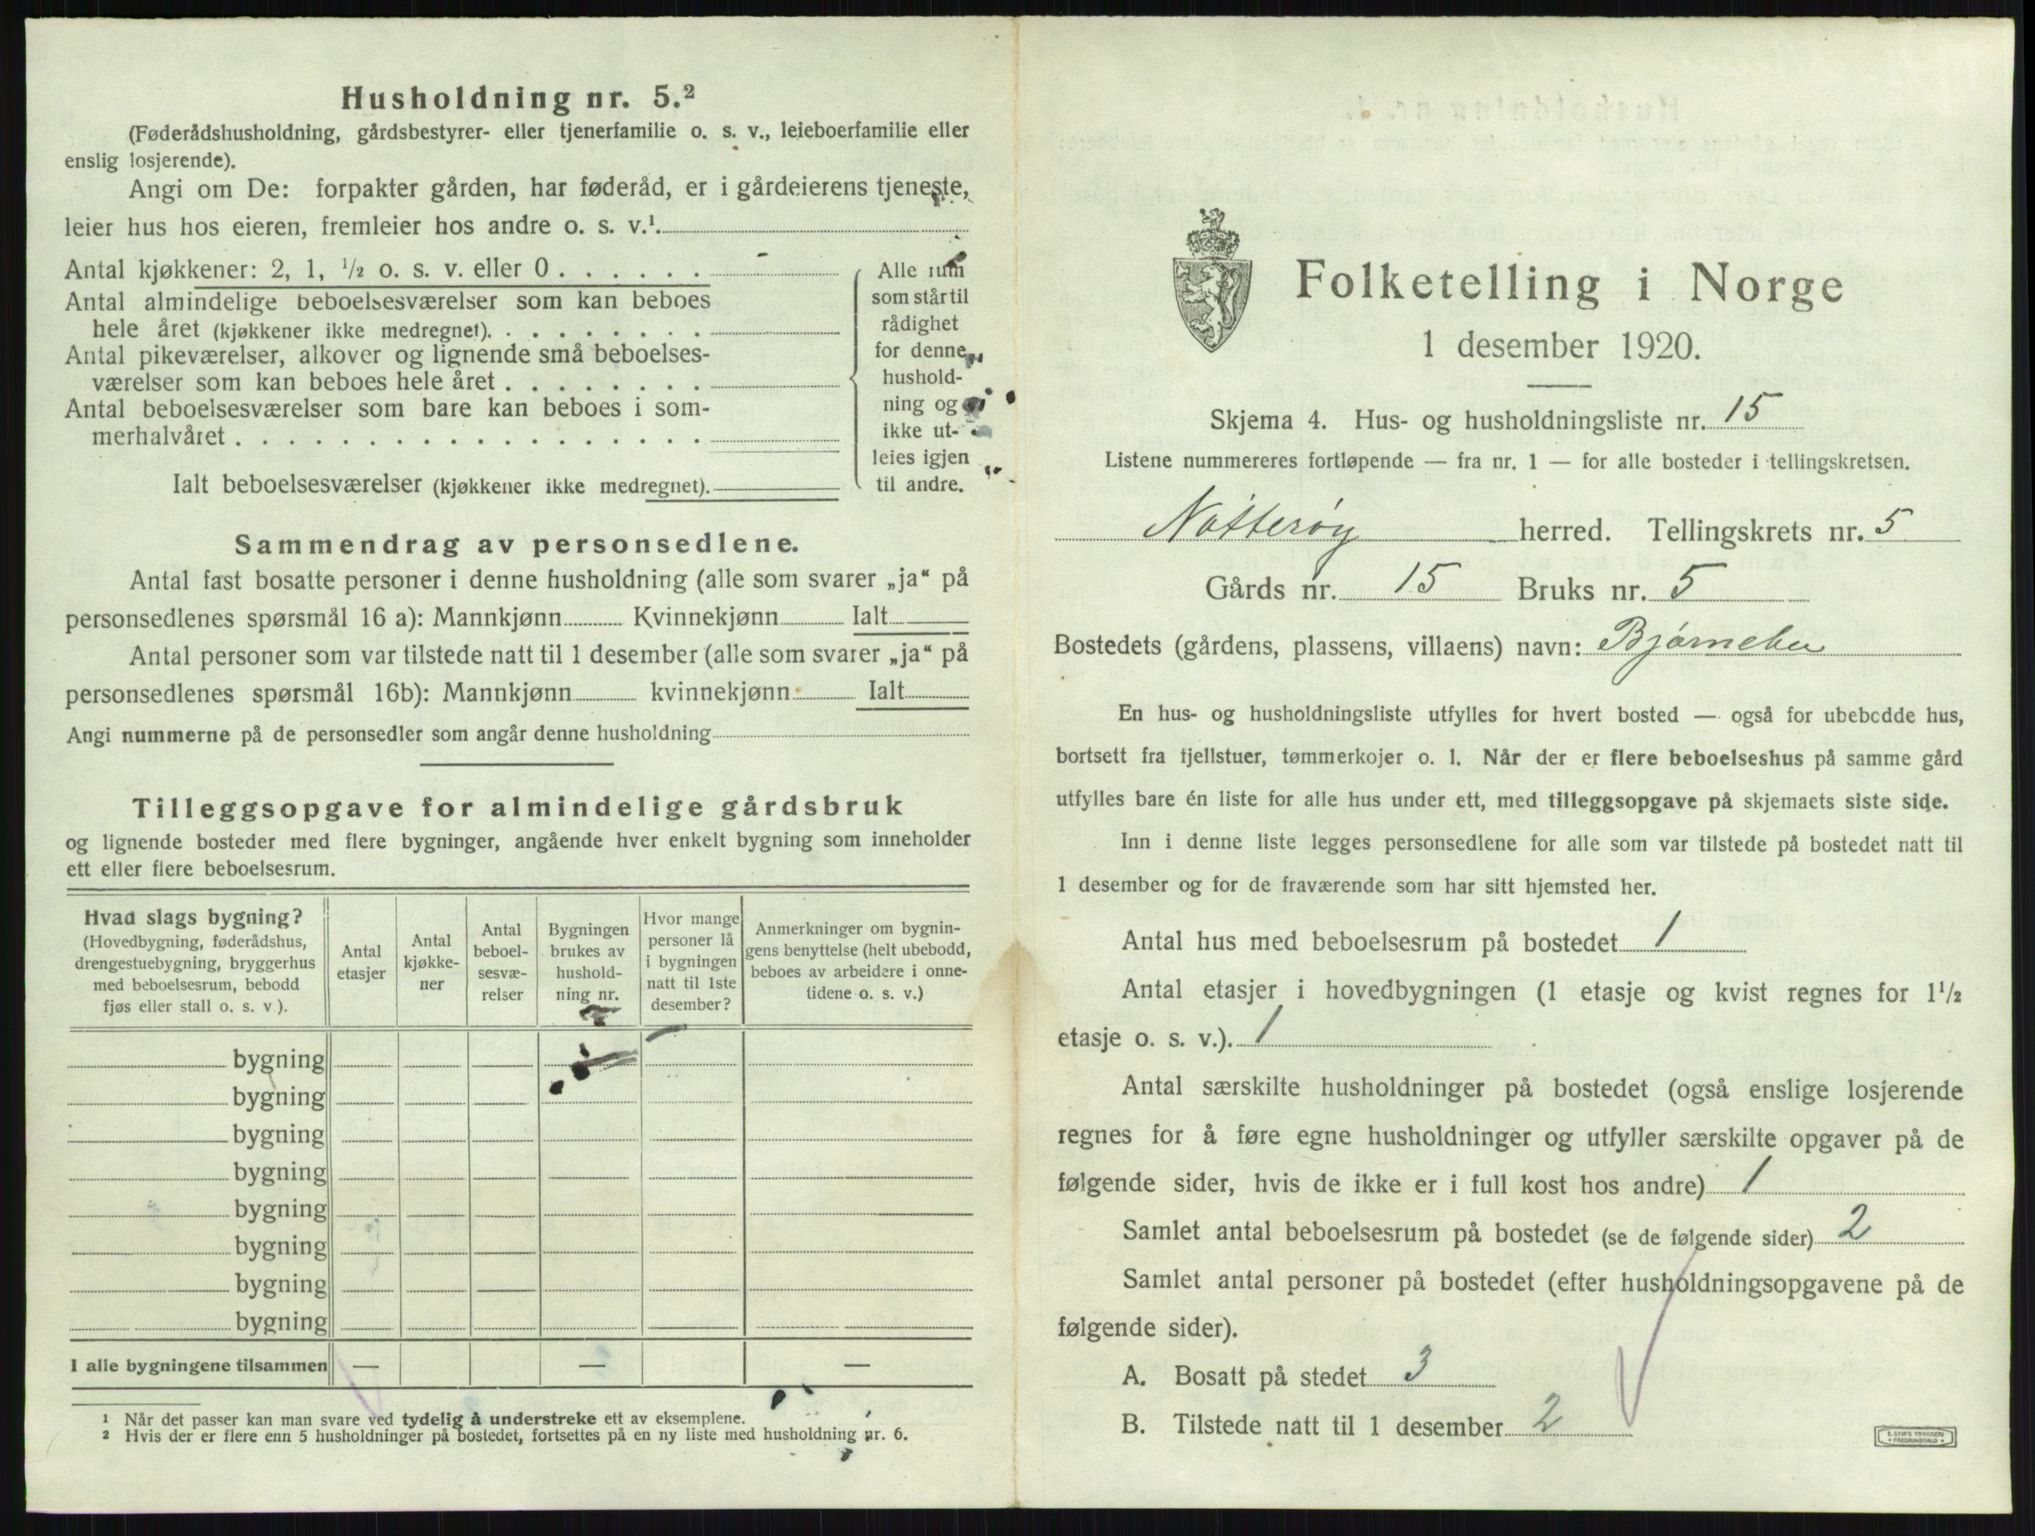 Husholdning nr. 5.²
(Føderådshusholdning, gårdsbestyrer- eller tjenerfamilie o. s. v., leieboerfamilie eller
enslig losjerende).
Angi om De: forpakter gården, har føderåd, er i gårdeierens tjeneste,
leier hus hos eieren, fremleier hos andre o. s. v.¹
Antal kjøkkener: 2, 1, ½ o. s. v. eller 0 . . . . . .
Antal almindelige beboelsesværelser som kan beboes
hele året (kjøkkener ikke medregnet). . . . . . . . .
Antal pikeværelser, alkover og lignende små beboelses-
værelser som kan beboes hele året . . . . . . . .
Antal beboelsesværelser som bare kan beboes i som-
merhalvåret . . . . . . . . . . . . . . . . . .
Ialt beboelsesværelser (kjøkkener ikke medregnet).
Alle rum
som står til
rådighet
for denne
hushold-
ning og
ikke ut-
leies igjen
til andre.
Sammendrag av personsedlene.
Antal fast bosatte personer i denne husholdning (alle som svarer „ja“ på
personsedlenes spørsmål 16 a): Mannkjønn Kvinnekjønn Ialt
Antal personer som var tilstede natt til 1 desember (alle som svarer „ja“ på
personsedlenes spørsmål 16b): Mannkjønn kvinnekjønn Ialt
Angi nummerne på de personsedler som angår denne husholdning
Tilleggsopgave for almindelige gårdsbruk
og lignende bosteder med flere bygninger, angående hver enkelt bygning som inneholder
ett eller flere beboelsesrum.
Hvad slags bygning?
(Hovedbygning, føderådshus,
drengestuebygning, bryggerhus
med beboelsesrum, bebodd
fjøs eller stall o. s. v.).
Antal
etasjer
Antal
kjøkke-
ner
Antal
beboel-
sesvæ-
relser
Bygningen
brukes av
hushold-
ning nr.
Hvor mange
personer lå
i bygningen
natt til 1ste
desember?
Anmerkninger om bygnin-
gens benyttelse (helt ubebodd,
beboes av arbeidere i onne-
tidene o. s. v.)
bygning
bygning
bygning
bygning
bygning
bygning
bygning
bygning
I alle bygningene tilsammen — — —
¹ Når det passer kan man svare ved tydelig å understreke ett av eksemplene.
² Hvis der er flere enn 5 husholdninger på bostedet, fortsettes på en ny liste med husholdning nr. 6.
Folketelling i Norge
1 desember 1920.
Skjema 4. Hus- og husholdningsliste nr. 15
Listene nummereres fortløpende — fra nr. 1 — for alle bosteder i tellingskretsen.
Nøtterøy herred. Tellingskrets nr. 5
Gårds nr. 15 Bruks nr. 5
Bostedets (gårdens, plassens, villaens) navn: Bjørnebu
En hus- og husholdningsliste utfylles for hvert bosted — også for ubebodde hus,
bortsett fra fjellstuer, tømmerkojer o. l. Når der er flere beboelseshus på samme gård
utfylles bare én liste for alle hus under ett, med tilleggsopgave på skjemaets siste side.
Inn i denne liste legges personsedlene for alle som var tilstede på bostedet natt til
1 desember og for de fraværende som har sitt hjemsted her.
Antal hus med beboelsesrum på bostedet 1
Antal etasjer i hovedbygningen (1 etasje og kvist regnes for 1½
etasje o. s. v.). 1
Antal særskilte husholdninger på bostedet (også enslige losjerende
regnes for å føre egne husholdninger og utfyller særskilte opgaver på de
følgende sider, hvis de ikke er i full kost hos andre) 1
Samlet antal beboelsesrum på bostedet (se de følgende sider) 2
Samlet antal personer på bostedet (efter husholdningsopgavene på de
følgende sider).
A. Bosatt på stedet 3
B. Tilstede natt til 1 desember 2